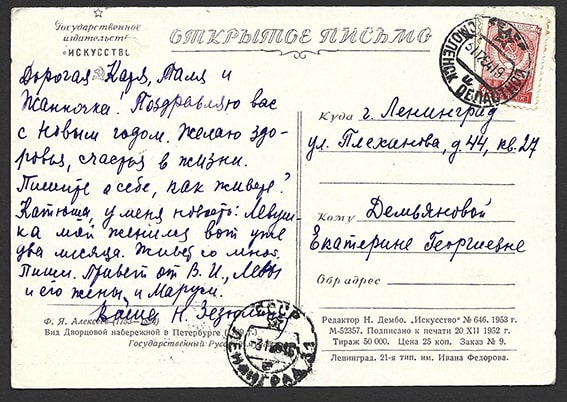 Государственное
издательство
„ИСКУССТВО
ОТКРЫТОЕ ПИСЬМО
Дорогая Каря, Таля и
Жанночка! Поздравляю вас
с Новым годом. Желаю здо-
ровья, счастья в жизни.
Пишите о себе, как живете?
Катюша, у меня новость: Левуш-
ка мой женился вот уже
два месяца. Живет со мной.
Пиши. Привет от В. И., Левы
и его жены, и Маруси.
Ваша Н.
Куда г. Ленинград
ул. Плеханова, д. 44, кв. 27
Кому Демьяновой
Екатерине Георгиевне
Обр адрес
Ф. Я. Алексеев
Вид Дворцовой набережной в Петербурге
Государственный
Редактор Н. Дембо. „Искусство" № 646. 1953 г.
М-52357. Подписано к печати 20 XII 1952 г.
Тираж 50 000. Цена 25 коп. Заказ № 9.
Ленинград. 21-я тип. им. Ивана Федорова.
СМОЛЕНСК
СССР
ЛЕНИНГРАД